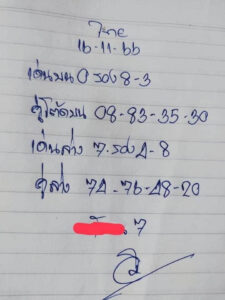 16-11-66
เด่นบน 0 รอง 8-3
คู่โต๊ดบน 08-83-35-30
เด่นล่าง 7 รอง 4-8
คู่ล่าง 74-76-48-20
7